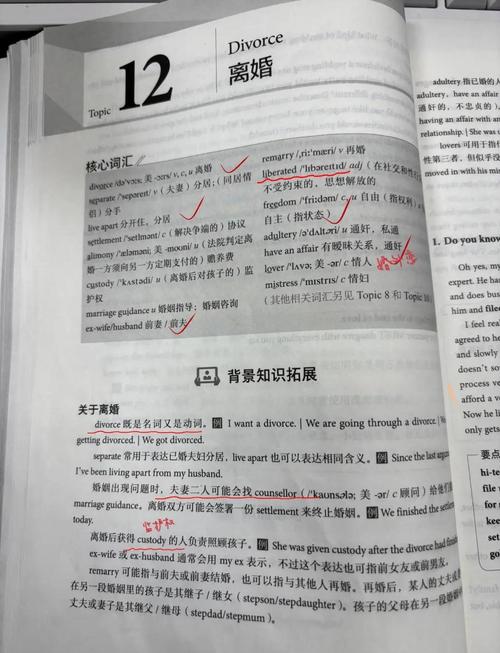 Topic 12
Divorce
离婚
核心词汇
divorce /dəˈvɔːs; 美 -ɔːrs/ v, c, u 离婚
separate /ˈsepəreɪt/ v（夫妻）分居；（同居情
侣）分手
live apart 分开住，分居
settlement /ˈsetlmənt/ c（解决争端的）协议
alimony /ˈælɪməni; 美 -mooni/ u（法院判定离
婚一方须向另一方定期支付的）赡养费
custody /ˈkʌstədi/ u（离婚后对孩子的）监
护权
marriage guidance u 婚姻指导；婚姻咨询
ex-wife/husband 前妻 / 前夫
remarry /ˌriːˈmæri/ v 再婚
liberated /ˈlɪbəreɪtɪd/ adj（在社交和性
不受约束的，思想解放的
freedom /ˈfriːdəm/ c, u 自由（指权利）
自主（指状态）
adultery /əˈdʌltəri/ u 通奸，私通
have an affair 有暧昧关系，通奸
lover /ˈlʌvə; 美 -ər/ c 情人
mistress /ˈmɪstrɪs/ c 情妇
（其他相关词汇另见 Topic 8 和 Topic
背景知识拓展
关于离婚
divorce 既是名词又是动词。例 I want a divorce. | We are going through a divorce. | We
getting divorced. | We got divorced.
separate 常用于表达已婚夫妇分居，live apart 也可以表达相同含义。例 Since the last
I've been living apart from my husband.
婚姻出现问题时，夫妻二人可能会找 counsellor (/ˈkaʊnsələ; 美 -ər/ c 顾问) 给他们
marriage guidance. 离婚双方可能会签署一份 settlement 来终止婚姻。例 We finished the
today.
监护权
离婚后获得 custody 的人负责照顾孩子。例 She was given custody after the divorce had
ex-wife 或 ex-husband 通常会用 my ex 表示，不过这个表达也可指前女友或前男友。
remarry 可能指与前夫或前妻结婚，也可以指与其他人再婚。再婚后，某人的丈夫或
在另一段婚姻里的孩子是其继子 / 继女 (stepson/stepdaughter)。孩子的父母在另一段婚姻
丈夫或妻子是其继父 / 继母 (stepdad/stepmum)。
adultery 指已婚的人
adultery, have an affair
通奸的，不忠贞的）
having an affair with
relationship. | She was
lovers 可用于指
性第三者，但似乎
moved in with his mis
1. Do you know
Oh yes, my
expert. He had
and does
him and filed
I feel
agreed to he
and slowly
doesn't so
process ve
afford a v
Now he li
only gets
要点
hi-te
file
for
kee
set
go